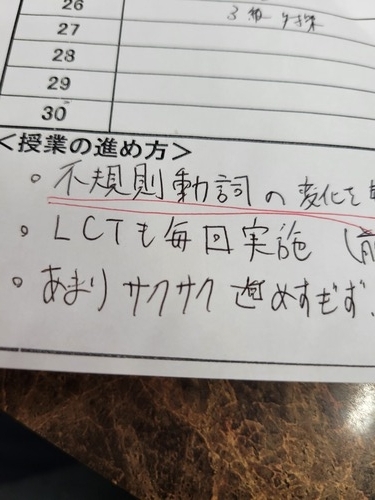 26
27
28
29
30
<授業の進め方>
。不規則動詞の変化を
。LCTも毎回実施 (
。あまりサクサク進めすぎず、